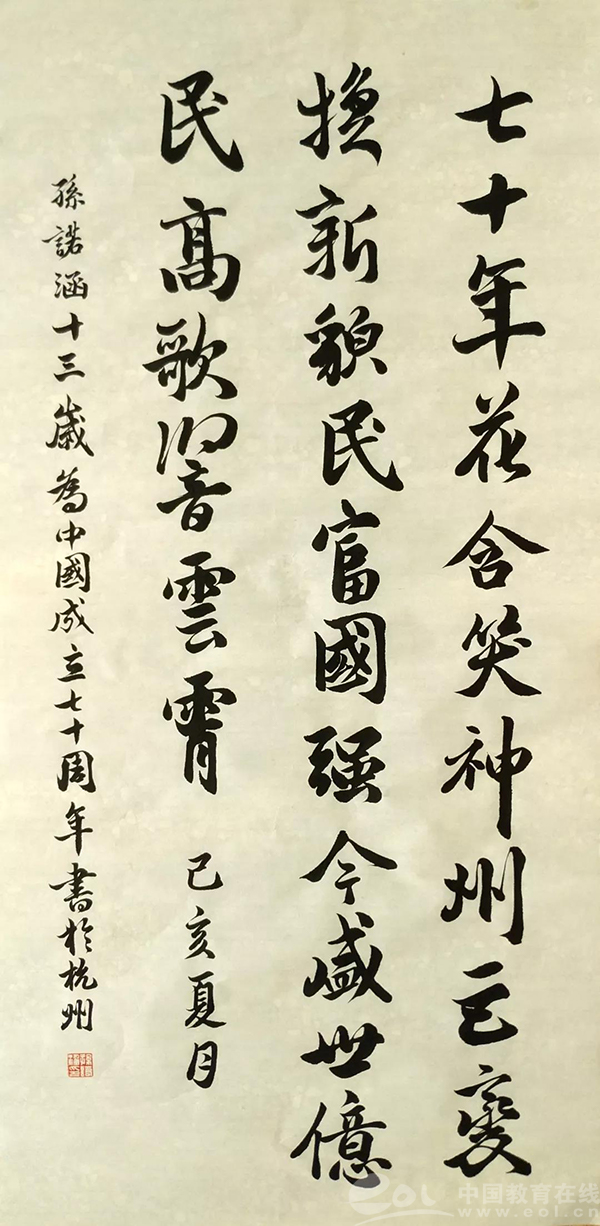 七十年花含笑神州已變
換新貌民富國强今盛世億
民高歌響雲霄 己亥夏月
孫諾涵十三歲為中國成立七十周年書於杭州
eol 中国教育在线
www.eol.cn